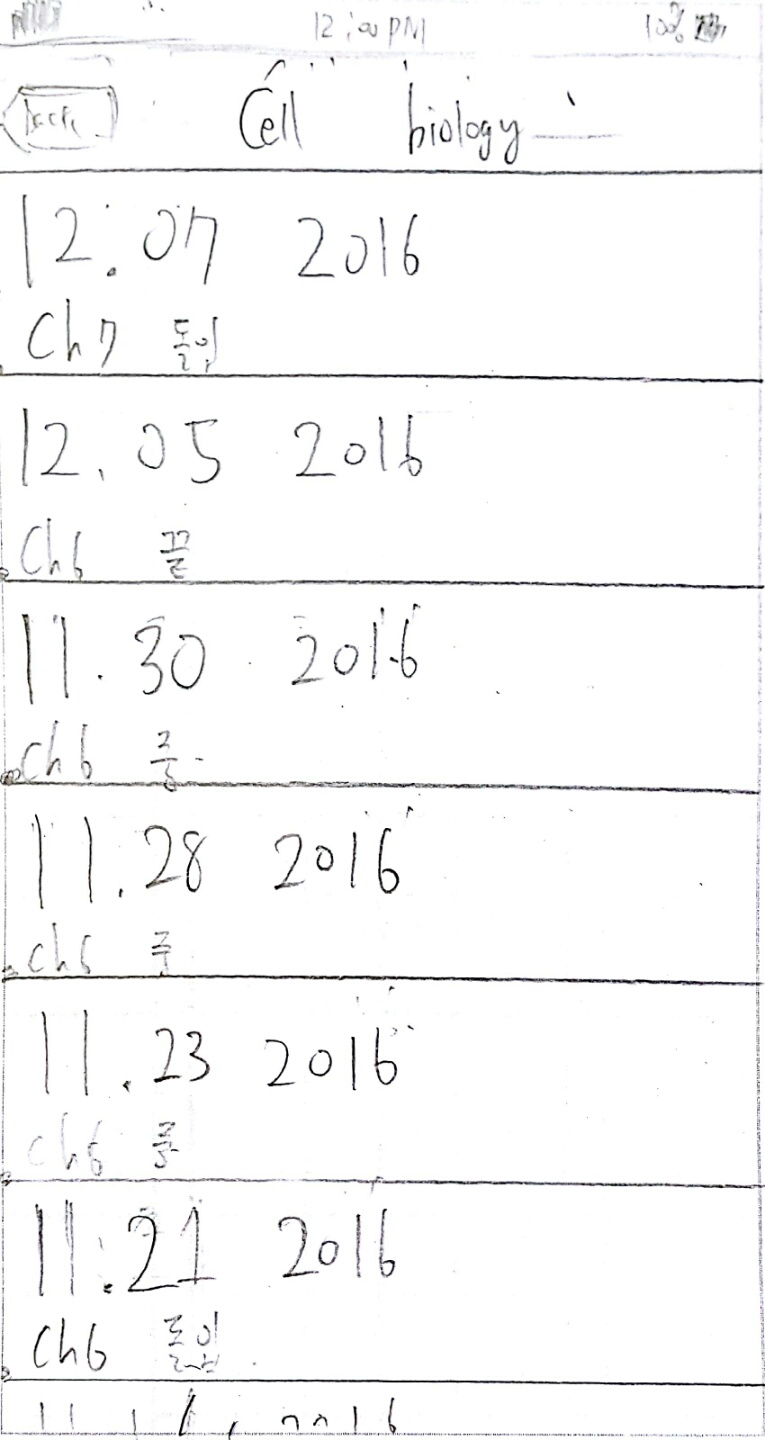 12:00 PM 100%
Back Cell biology
12.07 2016
Ch7 돌입
12.05 2016
Ch6 끝
11.30 2016
Ch6 중
11.28 2016
Ch6 중
11.23 2016
Ch6 중
11.21 2016
Ch6 돌입
2016